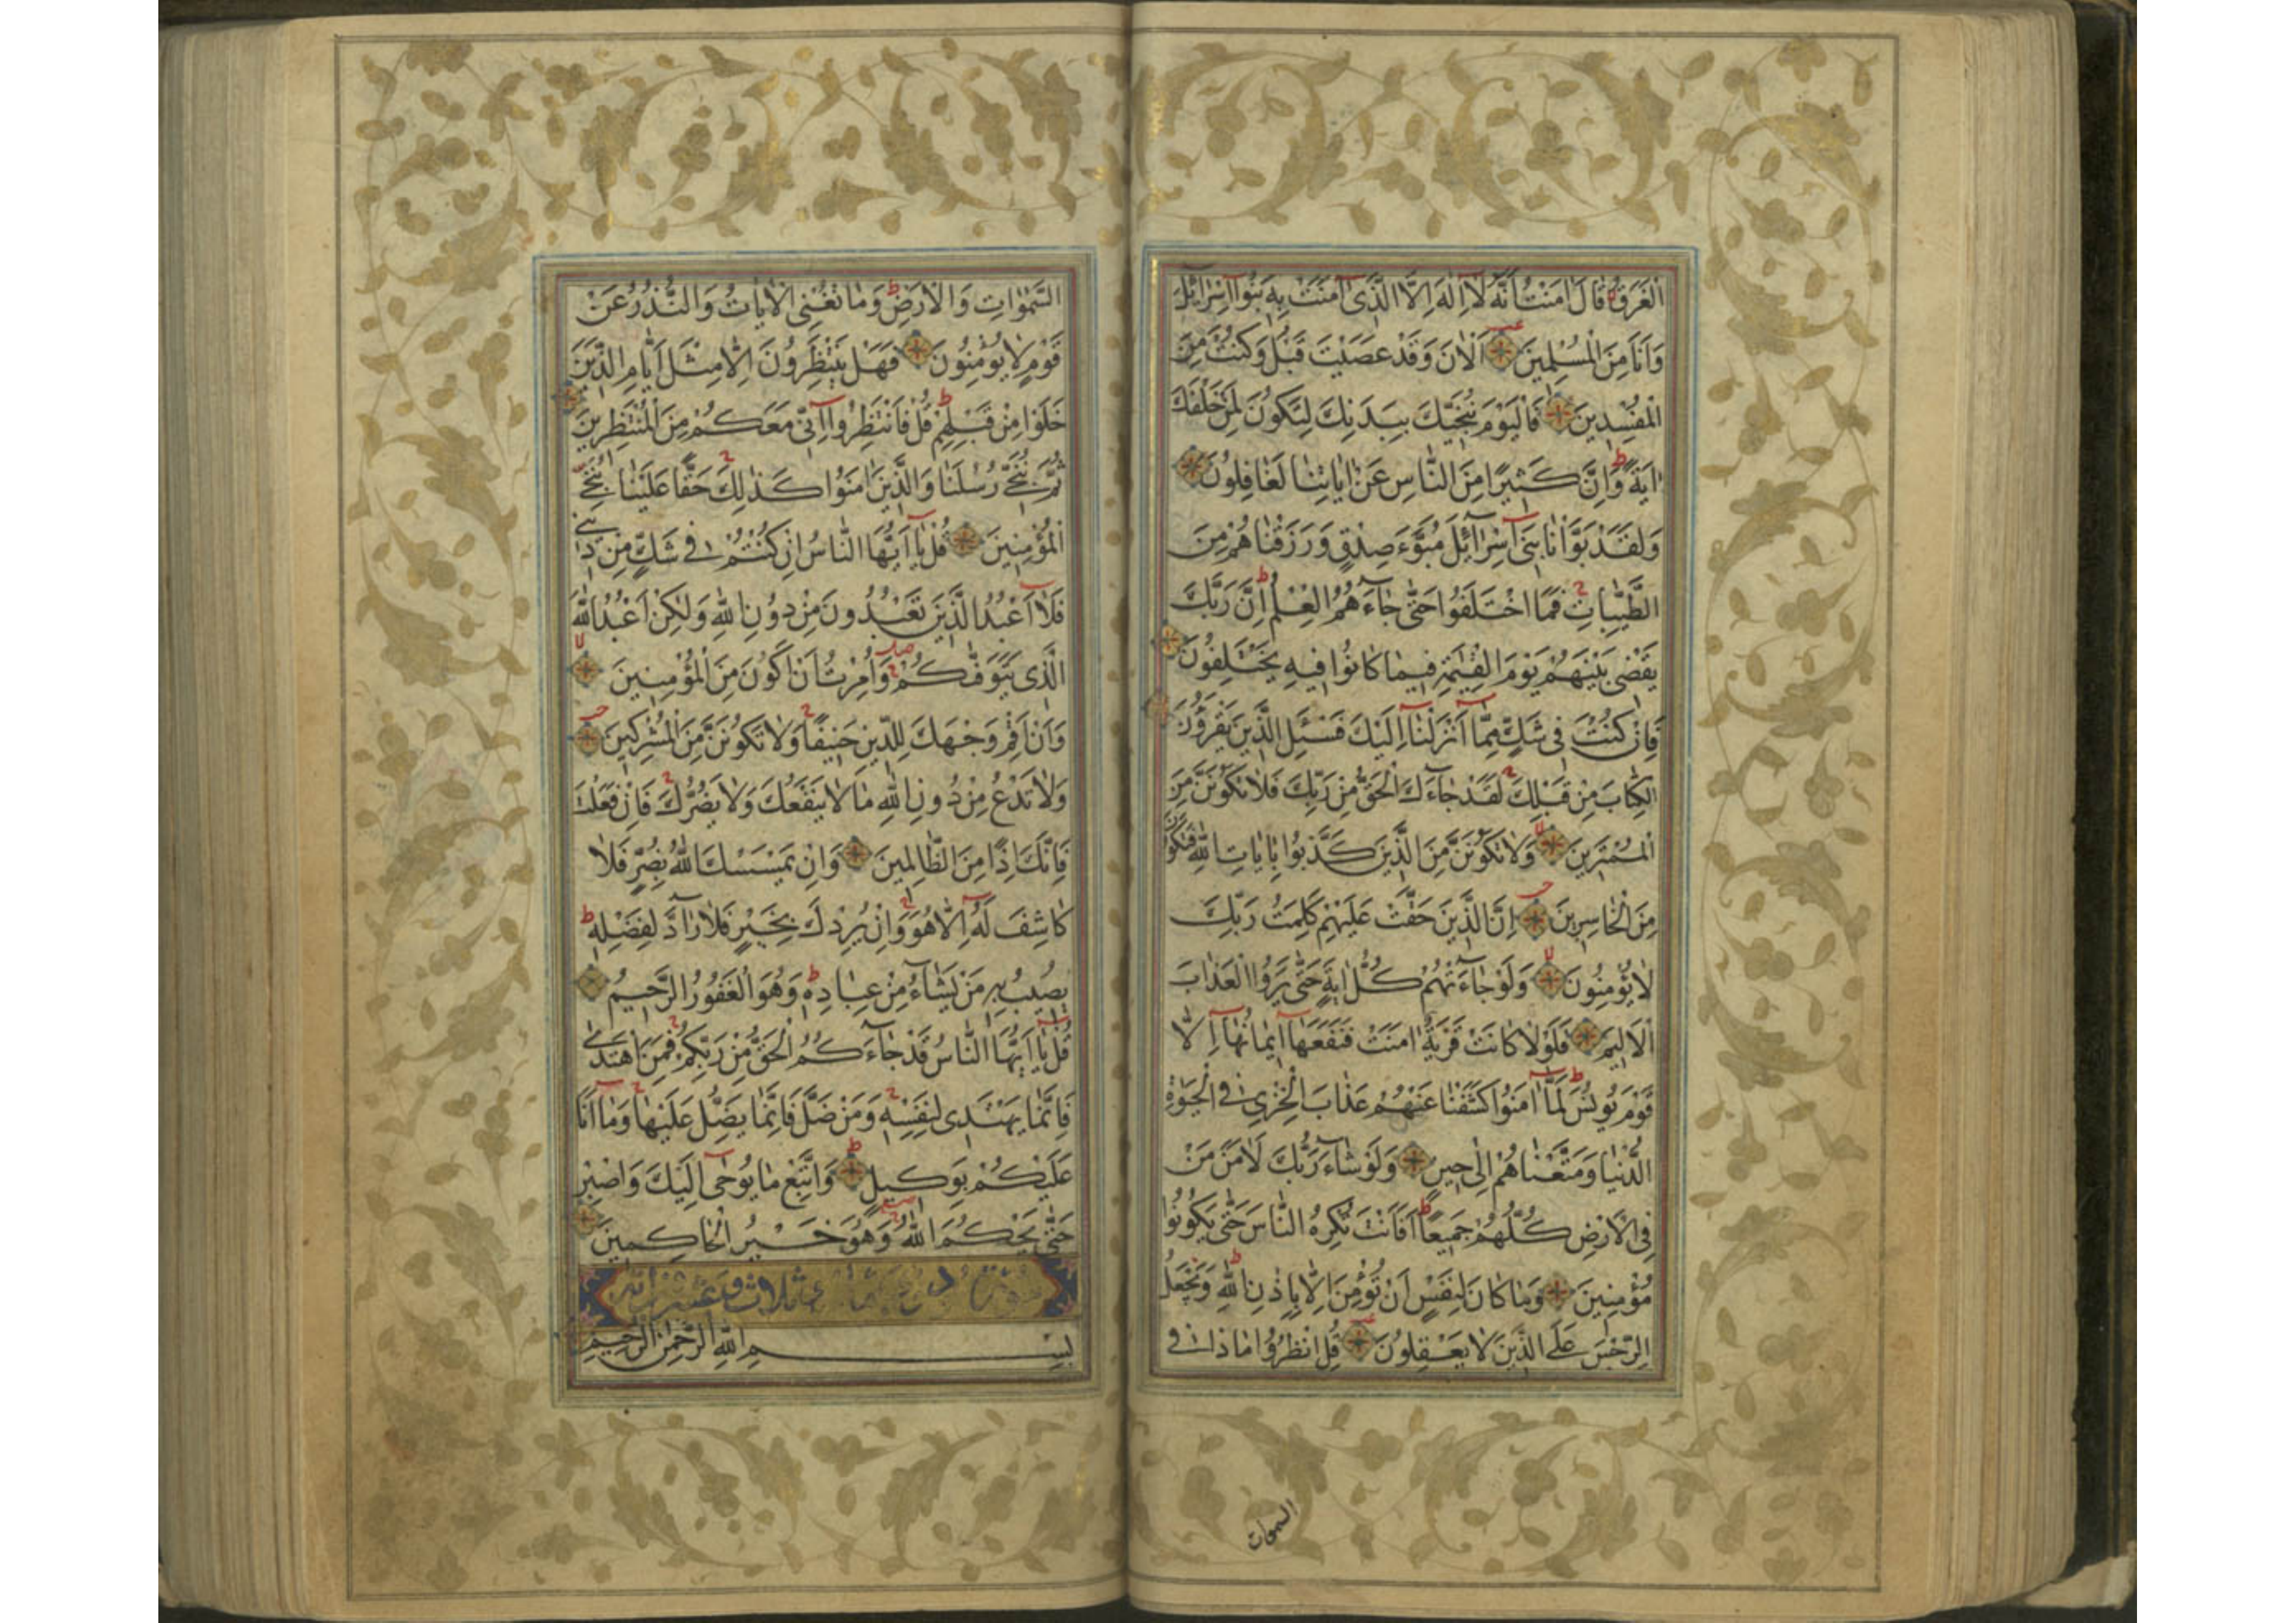 الْغَرَقُ قَالَ اٰمَنْتُ اَنَّهُ لَا اِلٰهَ اِلَّا الَّذٖى اٰمَنَتْ بِهٖ بَنُوا اِسْرَائٖلَ
وَاَنَا مِنَ الْمُسْلِمٖينَ آلْاٰنَ وَقَدْ عَصَيْتَ قَبْلُ وَكُنْتَ مِنَ
الْمُفْسِدٖينَ فَالْيَوْمَ نُنَجّٖيكَ بِبَدَنِكَ لِتَكُونَ لِمَنْ خَلْفَكَ
اٰيَةً وَاِنَّ كَثٖيرًا مِنَ النَّاسِ عَنْ اٰيَاتِنَا لَغَافِلُونَ
وَلَقَدْ بَوَّاْنَا بَنٖى اِسْرَائٖلَ مُبَوَّءَ صِدْقٍ وَرَزَقْنَاهُمْ مِنَ
الطَّيِّبَاتِ فَمَا اخْتَلَفُوا حَتّٰى جَاءَهُمُ الْعِلْمُ اِنَّ رَبَّكَ
يَقْضٖى بَيْنَهُمْ يَوْمَ الْقِيٰمَةِ فٖيمَا كَانُوا فٖيهِ يَخْتَلِفُونَ
فَاِنْ كُنْتَ فٖى شَكٍّ مِمَّا اَنْزَلْنَا اِلَيْكَ فَسْئَلِ الَّذٖينَ يَقْرَؤُنَ
الْكِتَابَ مِنْ قَبْلِكَ لَقَدْ جَاءَكَ الْحَقُّ مِنْ رَبِّكَ فَلَا تَكُونَنَّ مِنَ
الْمُمْتَرٖينَ وَلَا تَكُونَنَّ مِنَ الَّذٖينَ كَذَّبُوا بِاٰيَاتِ اللّٰهِ فَتَكُونَ
مِنَ الْخَاسِرٖينَ اِنَّ الَّذٖينَ حَقَّتْ عَلَيْهِمْ كَلِمَتُ رَبِّكَ
لَا يُؤْمِنُونَ وَلَوْ جَاءَتْهُمْ كُلُّ اٰيَةٍ حَتّٰى يَرَوُا الْعَذَابَ
الْاَلٖيمَ فَلَوْلَا كَانَتْ قَرْيَةٌ اٰمَنَتْ فَنَفَعَهَا اٖيمَانُهَا اِلَّا
قَوْمَ يُونُسَ لَمَّا اٰمَنُوا كَشَفْنَا عَنْهُمْ عَذَابَ الْخِزْىِ فِى الْحَيٰوةِ
الدُّنْيَا وَمَتَّعْنَاهُمْ اِلٰى حٖينٍ وَلَوْ شَاءَ رَبُّكَ لَاٰمَنَ مَنْ
فِى الْاَرْضِ كُلُّهُمْ جَمٖيعًا اَفَاَنْتَ تُكْرِهُ النَّاسَ حَتّٰى يَكُونُوا
مُؤْمِنٖينَ وَمَا كَانَ لِنَفْسٍ اَنْ تُؤْمِنَ اِلَّا بِاِذْنِ اللّٰهِ وَيَجْعَلُ
الرِّجْسَ عَلَى الَّذٖينَ لَا يَعْقِلُونَ قُلِ انْظُرُوا مَاذَا فِى
السموات
السَّمٰوَاتِ وَالْاَرْضِ وَمَا تُغْنِى الْاٰيَاتُ وَالنُّذُرُ عَنْ
قَوْمٍ لَا يُؤْمِنُونَ فَهَلْ يَنْتَظِرُونَ اِلَّا مِثْلَ اَيَّامِ الَّذٖينَ
خَلَوْا مِنْ قَبْلِهِمْ قُلْ فَانْتَظِرُوا اِنّٖى مَعَكُمْ مِنَ الْمُنْتَظِرٖينَ
ثُمَّ نُنَجّٖى رُسُلَنَا وَالَّذٖينَ اٰمَنُوا كَذٰلِكَ حَقًّا عَلَيْنَا نُنْجِ
الْمُؤْمِنٖينَ قُلْ يَا اَيُّهَا النَّاسُ اِنْ كُنْتُمْ فٖى شَكٍّ مِنْ دٖينٖى
فَلَا اَعْبُدُ الَّذٖينَ تَعْبُدُونَ مِنْ دُونِ اللّٰهِ وَلٰكِنْ اَعْبُدُ اللّٰهَ
الَّذٖى يَتَوَفّٰيكُمْ وَاُمِرْتُ اَنْ اَكُونَ مِنَ الْمُؤْمِنٖينَ
وَاَنْ اَقِمْ وَجْهَكَ لِلدّٖينِ حَنٖيفًا وَلَا تَكُونَنَّ مِنَ الْمُشْرِكٖينَ
وَلَا تَدْعُ مِنْ دُونِ اللّٰهِ مَا لَا يَنْفَعُكَ وَلَا يَضُرُّكَ فَاِنْ فَعَلْتَ
فَاِنَّكَ اِذًا مِنَ الظَّالِمٖينَ وَاِنْ يَمْسَسْكَ اللّٰهُ بِضُرٍّ فَلَا
كَاشِفَ لَهُ اِلَّا هُوَ وَاِنْ يُرِدْكَ بِخَيْرٍ فَلَا رَادَّ لِفَضْلِهٖ
يُصٖيبُ بِهٖ مَنْ يَشَاءُ مِنْ عِبَادِهٖ وَهُوَ الْغَفُورُ الرَّحٖيمُ
قُلْ يَا اَيُّهَا النَّاسُ قَدْ جَاءَكُمُ الْحَقُّ مِنْ رَبِّكُمْ فَمَنِ اهْتَدٰى
فَاِنَّمَا يَهْتَدٖى لِنَفْسِهٖ وَمَنْ ضَلَّ فَاِنَّمَا يَضِلُّ عَلَيْهَا وَمَا اَنَا
عَلَيْكُمْ بِوَكٖيلٍ وَاتَّبِعْ مَا يُوحٰى اِلَيْكَ وَاصْبِرْ
حَتّٰى يَحْكُمَ اللّٰهُ وَهُوَ خَيْرُ الْحَاكِمٖينَ
ثلاث وعشرون آية
بِسْمِ اللّٰهِ الرَّحْمٰنِ الرَّحٖيمِ